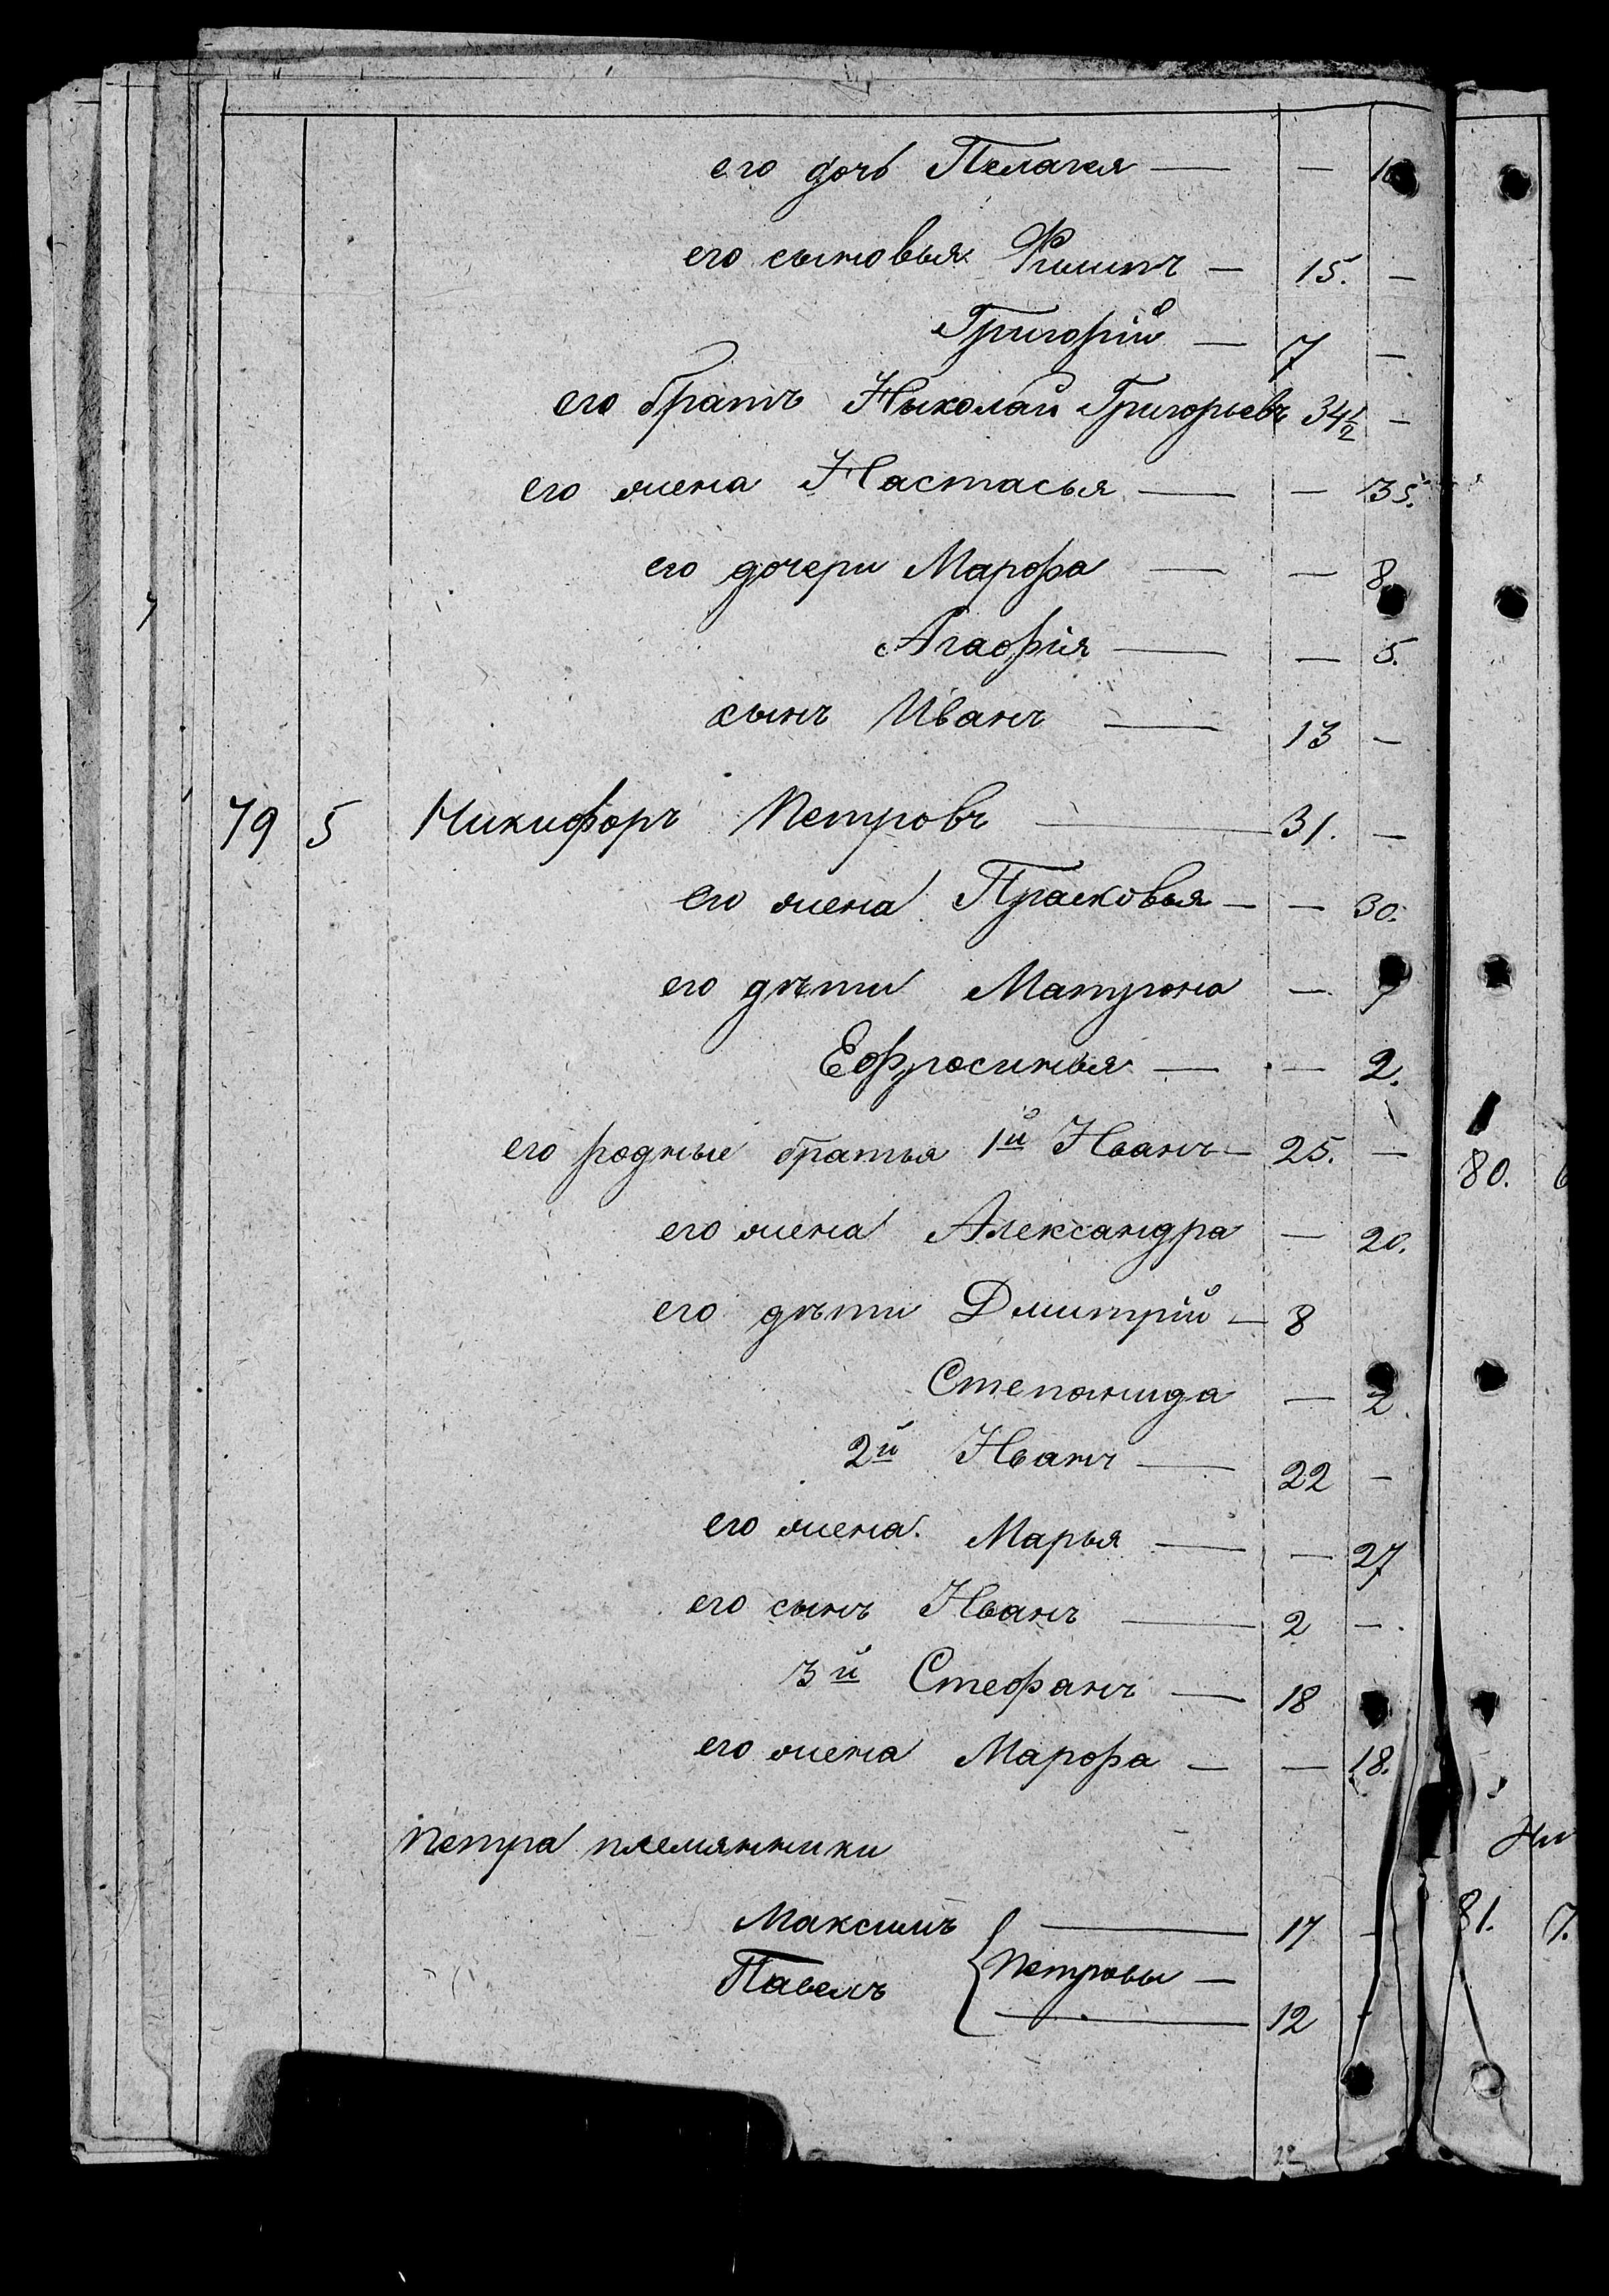 его дочь Пелагея — —
его сыновья Филипъ — 15. —
Григорій — 7 —
его братъ Николай Григорьевъ 34½ —
его жена Настасья — — 35.
его дочери Марофа — — 8
Агаофія — — 5.
сынъ Иванъ — 13 —
79 5 Никифоръ Петровъ — 31. —
его жена Прасковья — — 30.
его дѣти Матрона —
Ефросинья — — 2.
его родные братья 1й Иванъ — 25. —
80.
его жена Александра — 20.
его дѣти Дмитрій — 8
Степанида — 2
2й Иванъ — 22 —
его жена Марья — — 27
его сынъ Иванъ — 2 —
3й Стефанъ — 18
его жена Марофа — — 18.
Петра племянники
Максимъ — 17 -
81. 7.
Павелъ { Петровы —
— 12 -